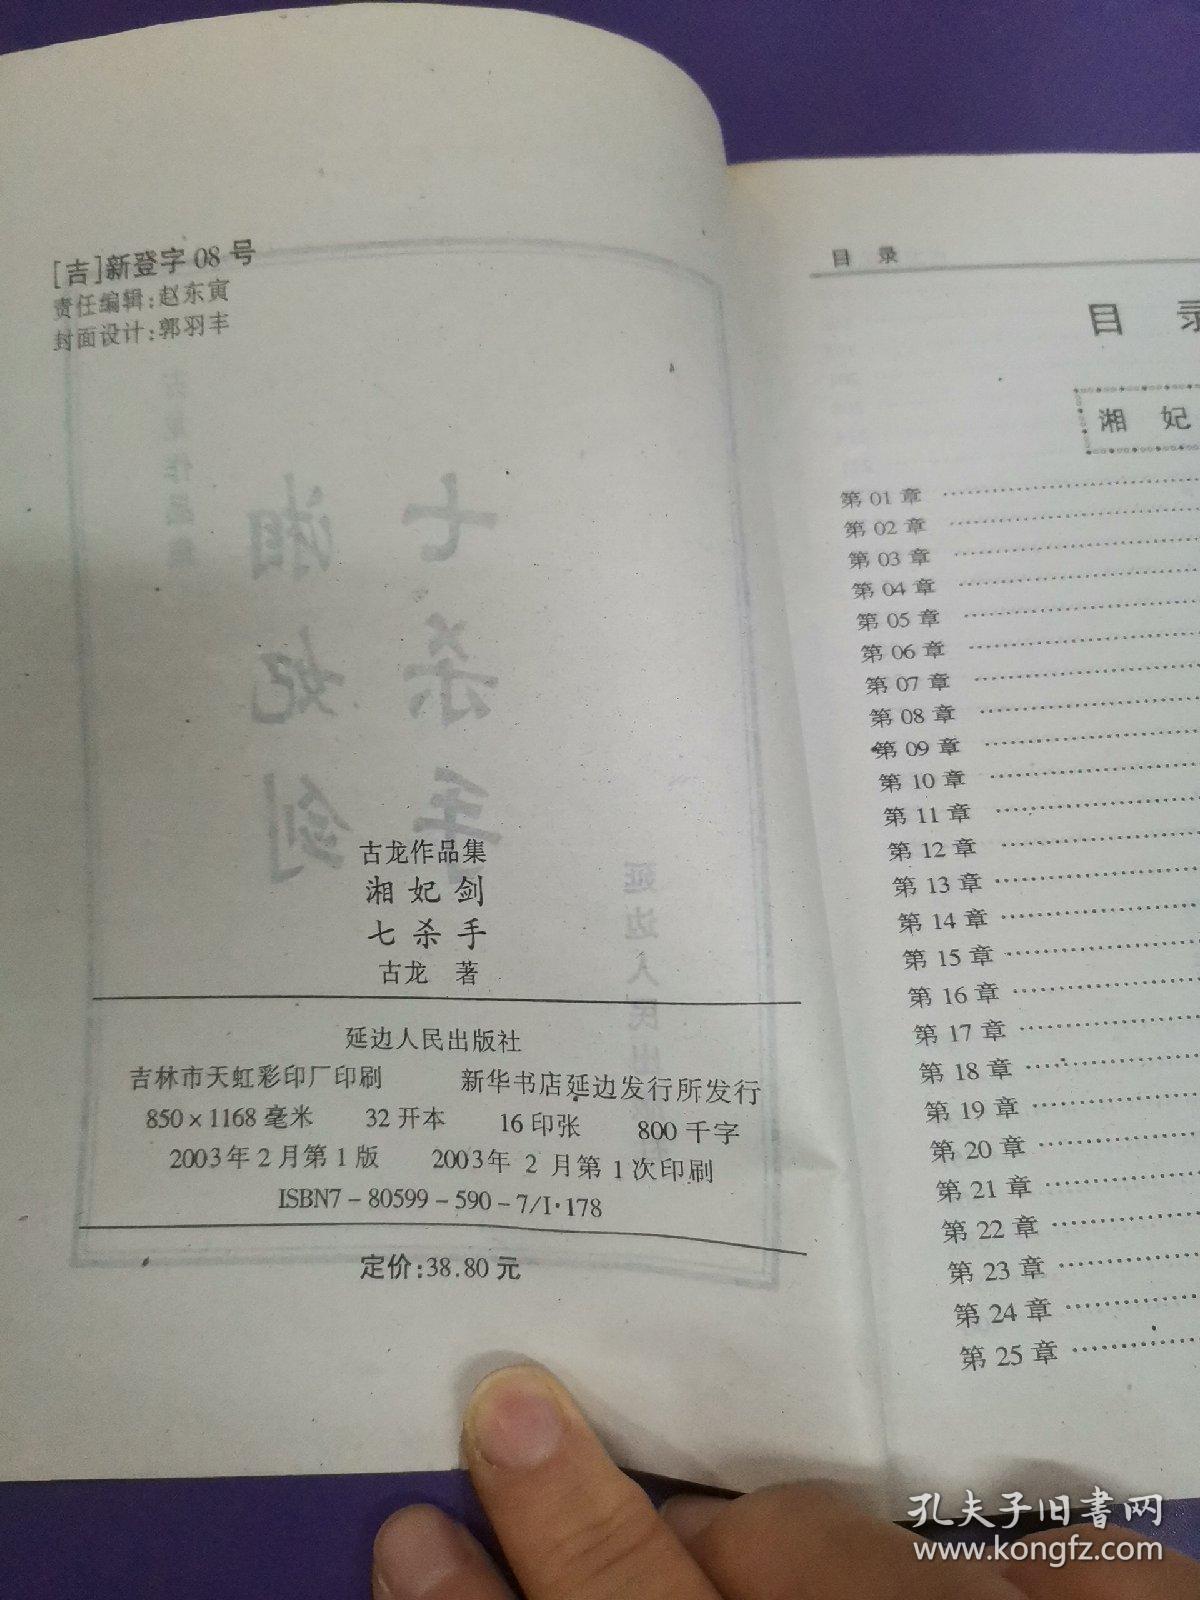 [吉]新登字08号
责任编辑:赵东寅
封面设计:郭羽丰
古龙作品集
湘妃剑
七杀手
古龙 著
延边人民出版社
吉林市天虹彩印厂印刷 新华书店延边发行所发行
850×1168毫米 32开本 16印张 800千字
2003年2月第1版 2003年2月第1次印刷
ISBN7-80599-590-7/I·178
定价:38.80元
目 录
目 录
湘 妃
第01章
第02章
第03章
第04章
第05章
第06章
第07章
第08章
第09章
第10章
第11章
第12章
第13章
第14章
第15章
第16章
第17章
第18章
第19章
第20章
第21章
第22章
第23章
第24章
第25章
孔夫子旧书网
www.kongfz.com